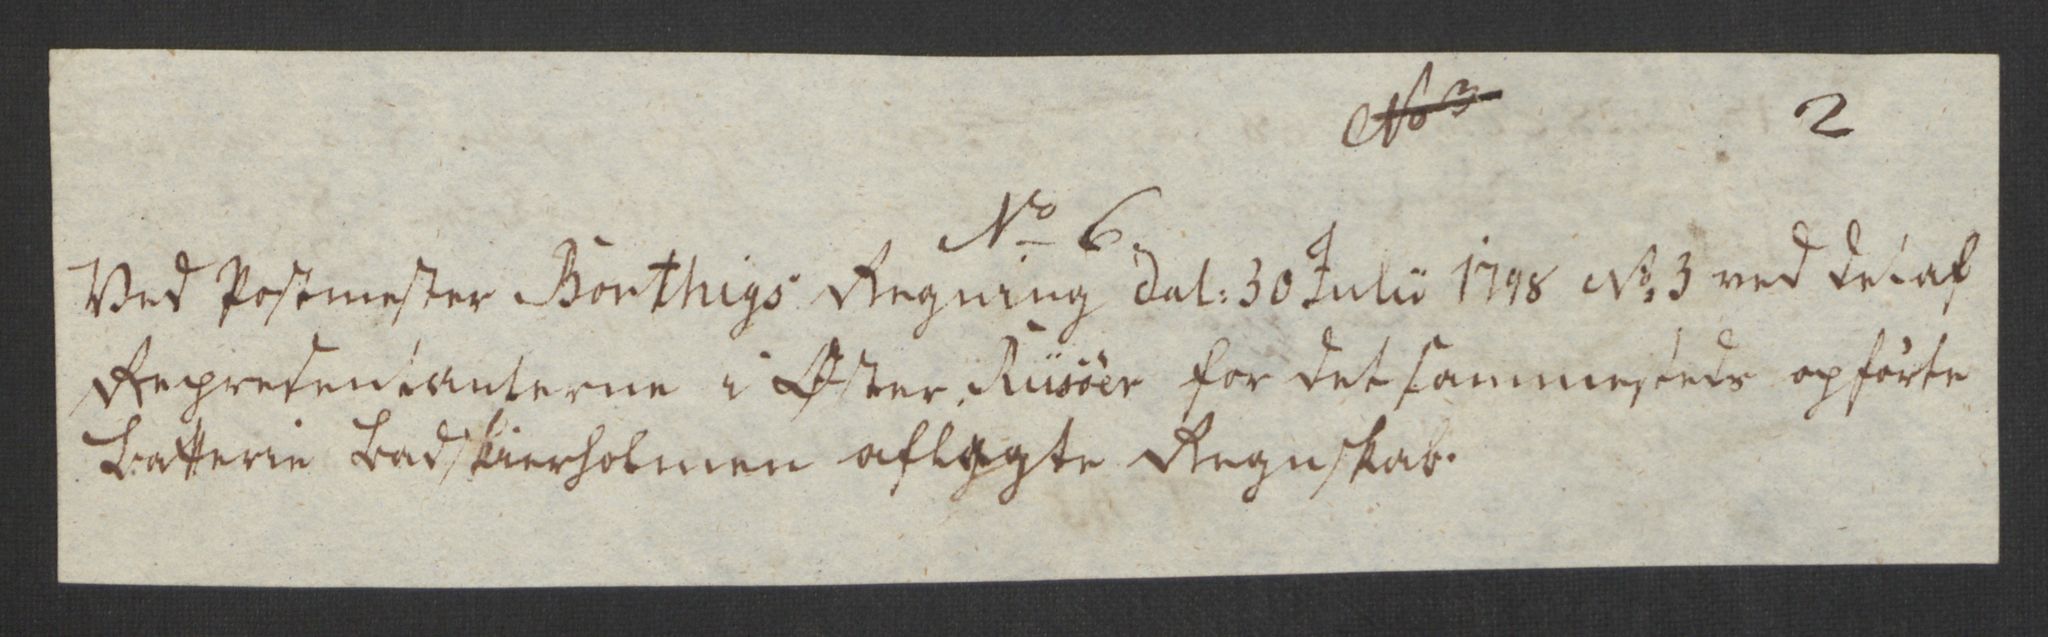 No 3
2
No 6.
Ved Postmester Borthigs Regning dat: 30 Julii 1798 No. 3 ved det af
Representanterne i Øster Riisöer for det sammesteds opförte
Batterie Badskierholmen aflagte Regnskab.